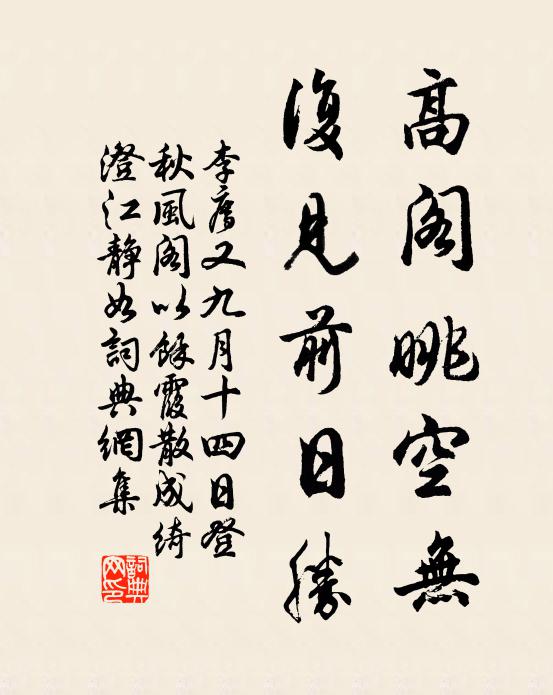 高阁眺空無
復見前日勝
李廌又九月十四日登
秋風阁以餘霞散成绮
澄江静如詞典網集
詞典网印